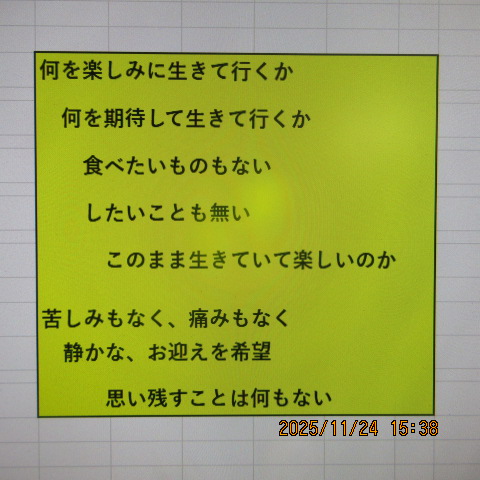 何を楽しみに生きて行くか
何を期待して生きて行くか
食べたいものもない
したいことも無い
このまま生きていて楽しいのか
苦しみもなく、痛みもなく
静かな、お迎えを希望
思い残すことは何もない
2025/11/24 15:38